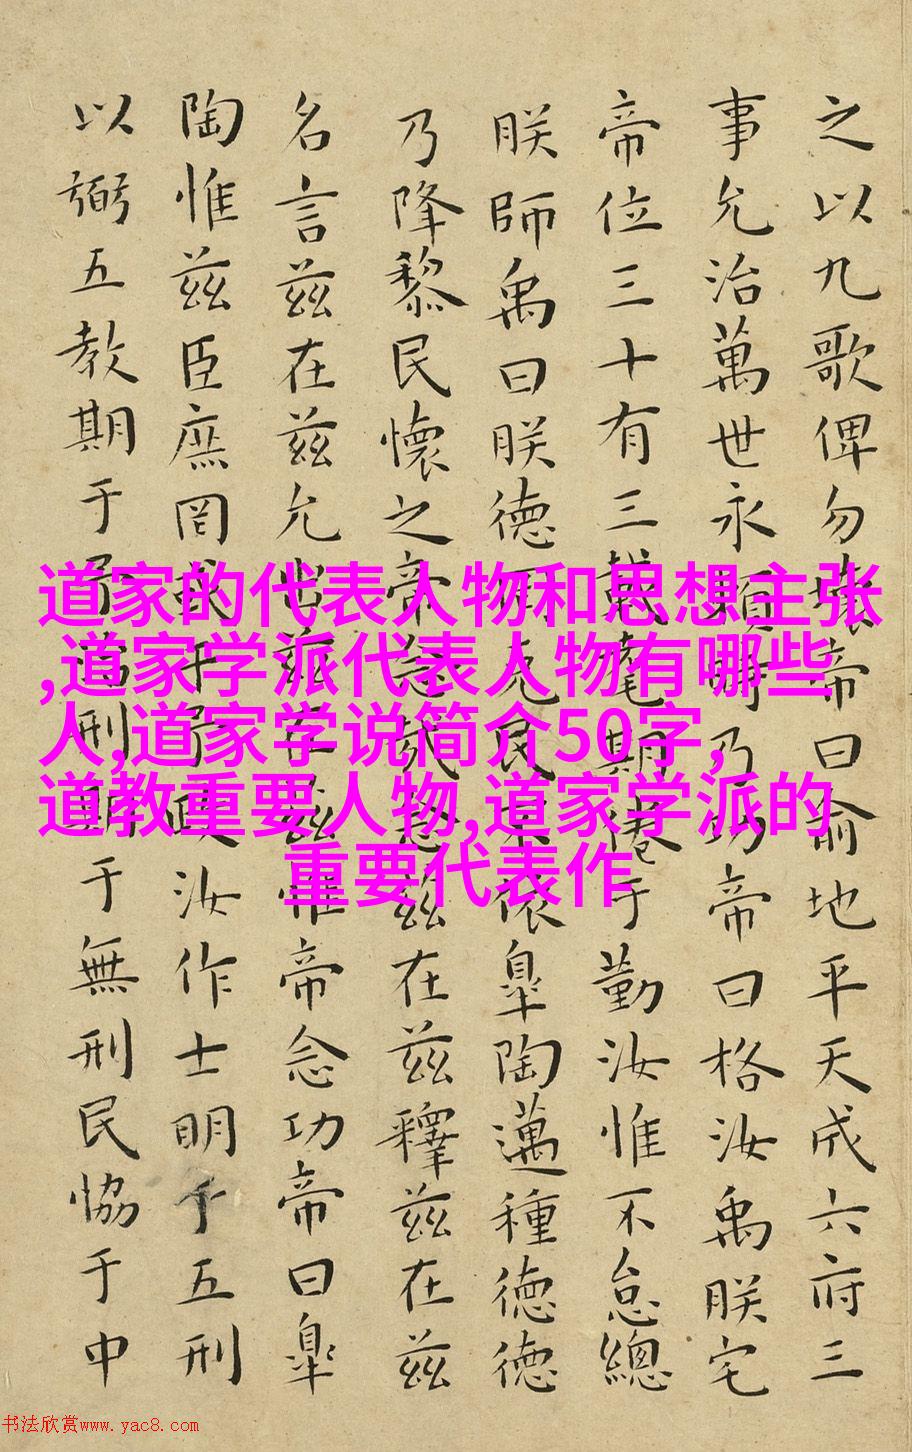 之以九歌俾勿壞帝曰俞地平天成六府三
事允治萬世永賴時乃功帝曰格汝禹朕宅
帝位三十有三載耄期倦于勤汝惟不怠總
朕師禹曰朕德罔克民不依皐陶邁種德德
乃降黎民懷之帝念哉念茲在茲釋茲在茲
名言茲在茲允出茲在茲惟帝念功帝曰皐
陶惟茲臣庶罔或干予正汝作士明于五刑
以弼五教期于予刑期于無刑民協于中
道家的代表人物和思想主张
,道家学派代表人物有哪些
人,道家学说简介50字,
道教重要人物,道家学派的
重要代表作
书法欣赏www.yac8.com